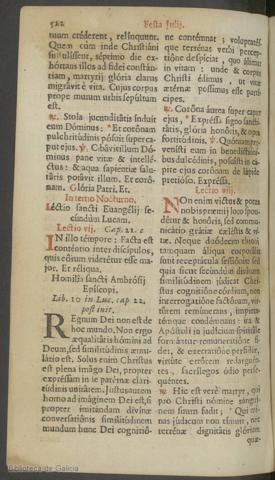 522
Festa Julij.
tuum crederent, relinquunt.
Quem cùm inde Christiáni
sustulíssent, séprimo die ex-
hórtans illos ad fidei constán-
tiam, martyrij glória clarus
migrávit è vita. Cujus corpus
prope murum urbis sepúltum
est.
℟. Stola jucunditátis índuit
eum Dóminus: * Et corónam
pulchritúdinis pósuit super ca-
put ejus. ℣. Cibávit illum Dó-
minus pane vitæ & intelléc-
tus: & aqua sapiéntiæ salu-
táris potávit illum. Et coró-
nam. Glória Patri, Et.
In tertio Nocturno.
Lectio sancti Evangélij se-
cúndum Lucam.
Lectio vij. Cap. 22. c
IN illo témpore: Facta est
conténtio inter discípulos,
quis eórum viderétur esse ma-
jor. Et réliqua.
Homilía sancti Ambrósij
Epíscopi.
Lib. 10 in Luc. cap. 22.
post init.
REgnum Dei non est de
hoc mundo. Non ergo
æquálitátis hómini ad
Deum, sed similitúdinis æmu-
látio est. Solus enim Christus
est plena imágo Dei, propter
expréssam in se patérnæ clari-
túdinis unitátem. Justus autem
homo ad imáginem Dei est, si
propter imitándam divínæ
conversatiónis similitúdinem
mundum hunc Dei cognitió-
ne contémnat; voluptatés-
que terrénas verbi percep-
tióne despíciat, quo álimur
in vitam: unde & corpus
Christi édimus, ut vitæ
ætérnæ possímus esse parti-
cipes.
℟. Coróna áurea super caput
ejus, * Expréssa signo sancti-
tátis, glória honóris, & opus
fortitúdinis. ℣. Quóniam præ-
venísti eum in benedictióni-
bus dulcédinis, posuísti in cá-
pite ejus corónam de lápide
pretióso. Expréssa.
Lectio viij.
NOn enim victus & potus
nobis præmínij loco spon-
détur & honóris, sed commu-
nicátio grátiæ cæléstis & vi-
tæ. Neque duódecim throni
tamquam áliqua corpóralis
sunt receptácula sessiónis: sed
quia ficut secúndùm divínam
similitúdinem júdicat Chris-
tus cognitióne córdium, non
interrogatióne factórum, vir-
tútem remúnerans, impietá-
témque condémnans: ita &
Apóstoli in judícium spirituále
formántur remuneratióne fi-
dei, & exsecratióne perfídiæ,
virtúte errórem redarguén-
tes, sacrílegos ódio perse-
quéntes.
℟. Hic est verè martyr, qui
pro Christi nómine sángui-
nem suum fudit; * Qui mi-
nas júdicum non tímuit, nec
terrénæ dignitátis glóriam
quæ-
Biblioteca de Galicia